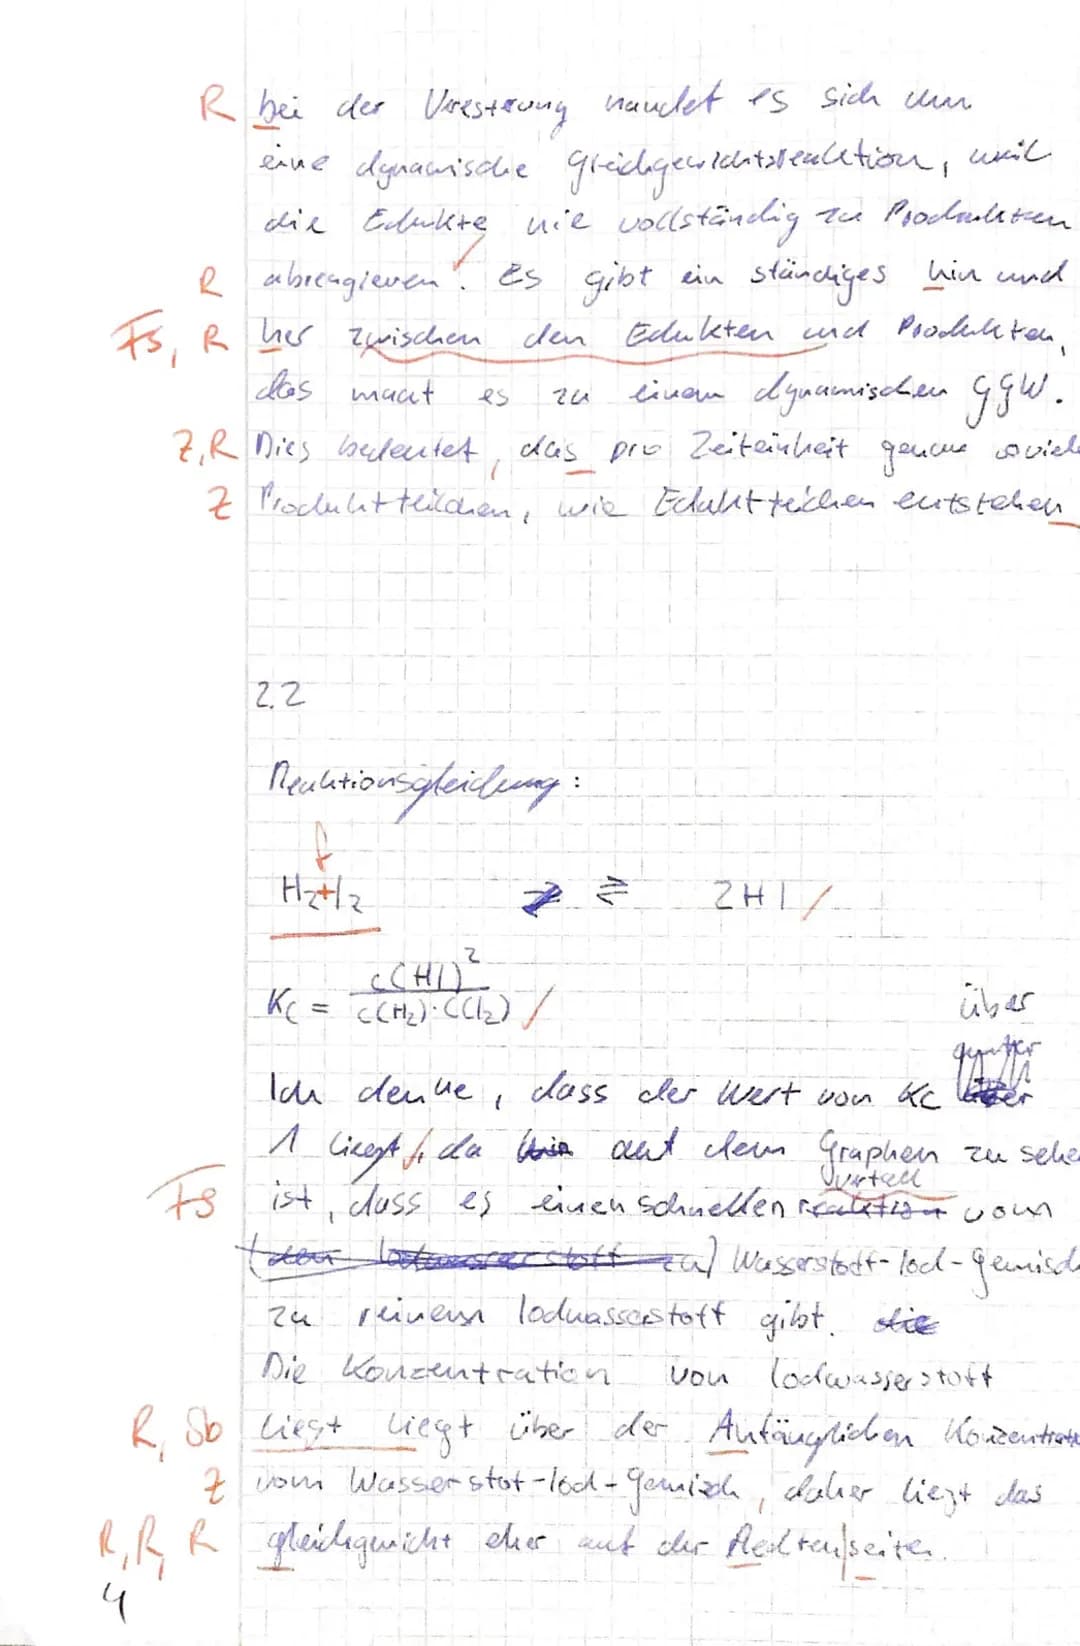 R bei der Veresterung handelt es sich um
eine dynamische Gleichgewichtsreaktion, weil
die Edukte nie vollständig zu Produkten
R abreagieren. Es gibt ein ständiges hin und
FS, R her zwischen den Edukten und Produkten,
das macht es zu einem dynamischen GGW.
Z, R Dies bedeutet, das pro Zeiteinheit genau soviele
Z Produktteilchen, wie Eduktteilchen entstehen
2.2
Reaktionsgleichung:
f
H₂+I₂ ⇌ 2HI /
Kc = c(HI)² / c(H₂)·c(I₂) /
über
Ich denke, dass der Wert von Kc
1 liegt, da auf dem Graphen zu sehe
verlauf
FS ist, dass es einen schnellen reaktion vom
Wasserstoff-Iod-Gemisch
zu reinem Iodwasserstoff gibt. die
Die Konzentration von Iodwasserstoff
R, Sb liegt liegt über der Anfänglichen Konzentrati
Z vom Wasserstof-Iod-Gemisch, daher liegt das
R, R, R gleichgewicht eher auf der Rechten seiten.
4